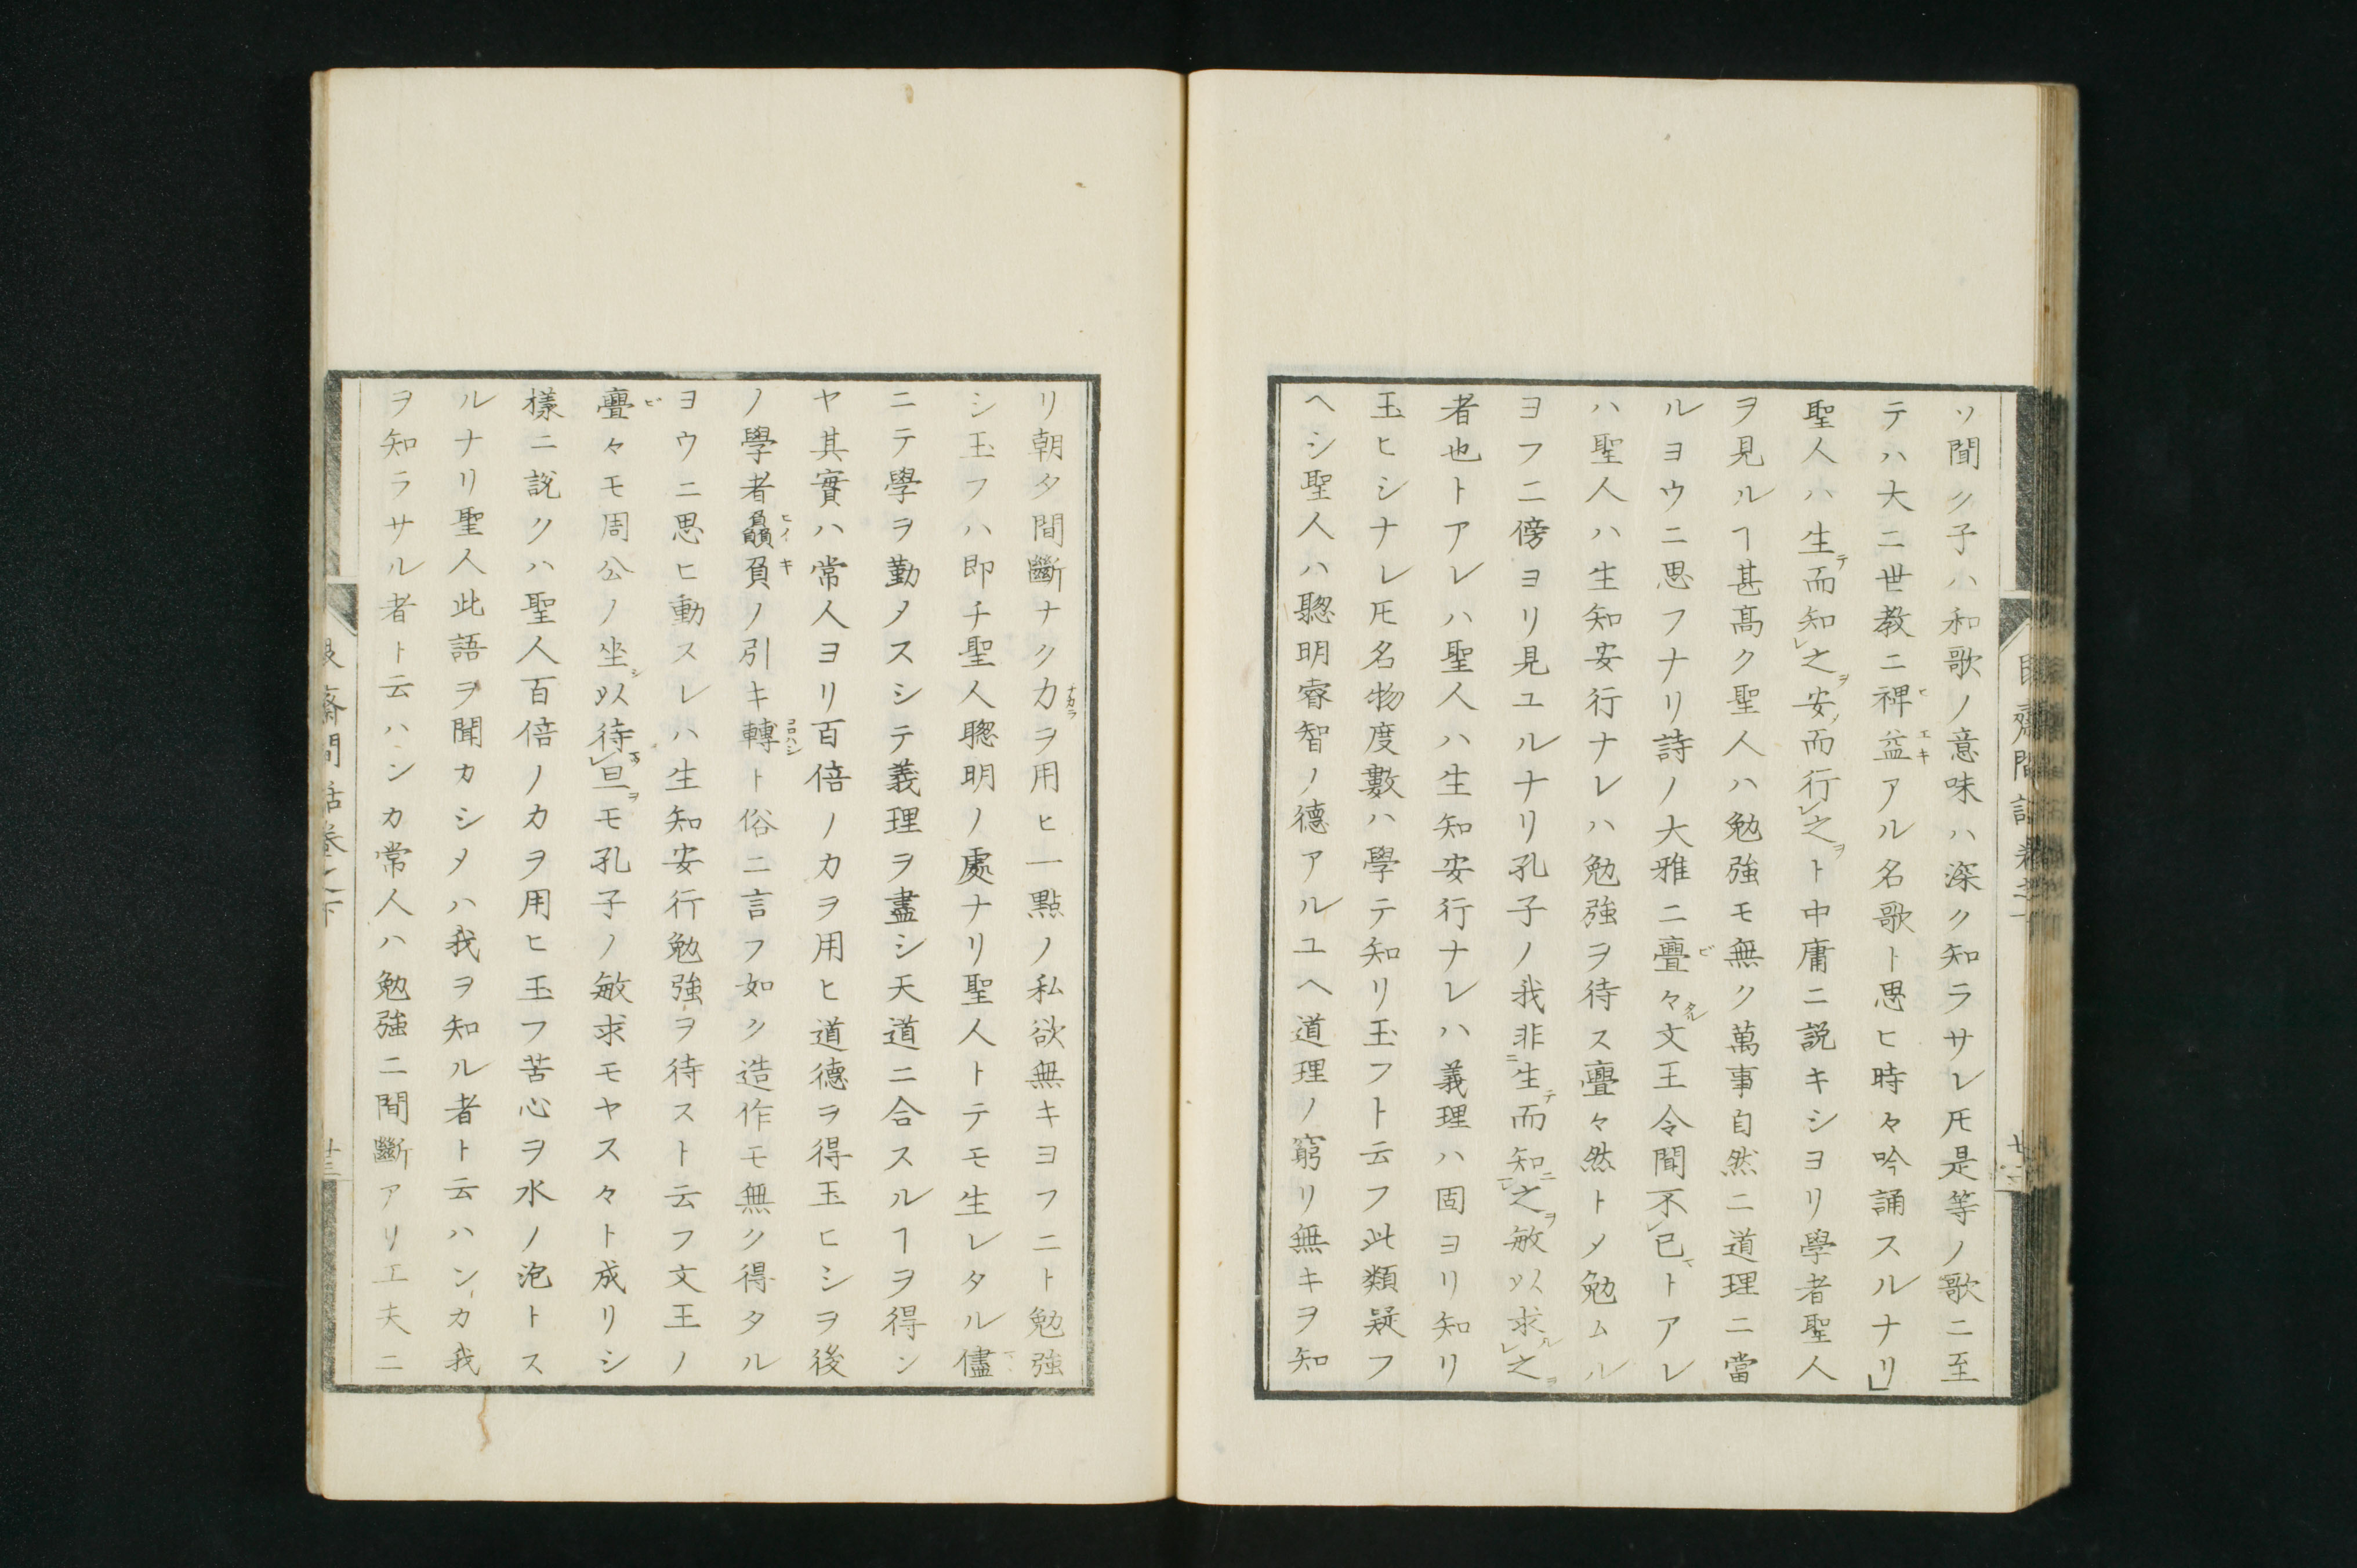 ソ聞ク子ハ和歌ノ意味ハ深ク知ラサレ𪜈是等ノ歌ニ至
テハ大ニ世教ニ裨益アル名歌ト思ヒ時々吟誦スルナリ」
聖人ハ生而知之安而行之ト中庸ニ説キシヨリ學者聖人
ヲ見ルヿ甚高ク聖人ハ勉強モ無ク萬事自然ニ道理ニ當
ルヨウニ思フナリ詩ノ大雅ニ亹々文王令聞不已トアレ
ハ聖人ハ生知安行ナレハ勉強ヲ待ス亹々然トメ勉ムル
ヨフニ傍ヨリ見ユルナリ孔子ノ我非生而知之敏以求之
者也トアレハ聖人ハ生知安行ナレハ義理ハ固ヨリ知リ
玉ヒシナレ𪜈名物度數ハ學テ知リ玉フト云フ此類疑フ
ヘシ聖人ハ聰明睿智ノ德アルユヘ道理ノ窮リ無キヲ知
リ朝夕間斷ナク力ヲ用ヒ一點ノ私欲無キヨフニト勉強
シ玉フハ即チ聖人聰明ノ處ナリ聖人トテモ生レタル儘
ニテ學ヲ勤メスシテ義理ヲ盡シ天道ニ合スルヿヲ得ン
ヤ其實ハ常人ヨリ百倍ノ力ヲ用ヒ道德ヲ得玉ヒシヲ後
ノ學者贔負ノ引キ轉ト俗ニ言フ如ク造作モ無ク得タル
ヨウニ思ヒ動スレハ生知安行勉強ヲ待スト云フ文王ノ
亹々モ周公ノ坐以待旦モ孔子ノ敏求モヤス々ト成リシ
樣ニ説クハ聖人百倍ノ力ヲ用ヒ玉フ苦心ヲ水ノ泡トス
ルナリ聖人此語ヲ聞カシメハ我ヲ知ル者ト云ハンカ我
ヲ知ラサル者ト云ハンカ常人ハ勉強ニ間斷アリ工夫ニ